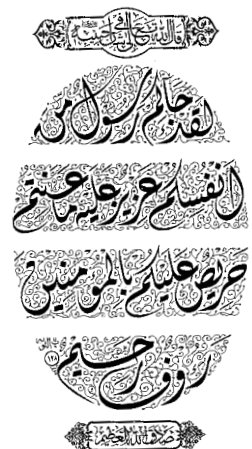 قال الله تبارك وتعالى في
لقد جاءكم رسول من
انفسكم عزيز عليه ما عنتم
حريص عليكم بالمومنين
روف رحيم ١٢٨
صدق الله العظيم